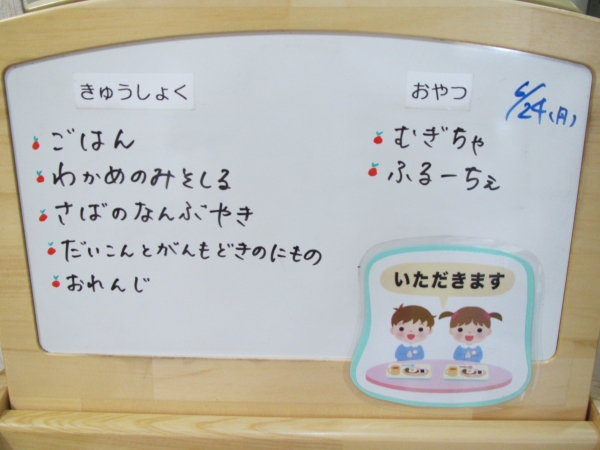 きゅうしょく
ごはん
わかめのみそしる
さばのなんぶやき
だいこんとがんもどきのにもの
おれんじ
おやつ
むぎちゃ
ふるーちぇ
6/24(月)
いただきます